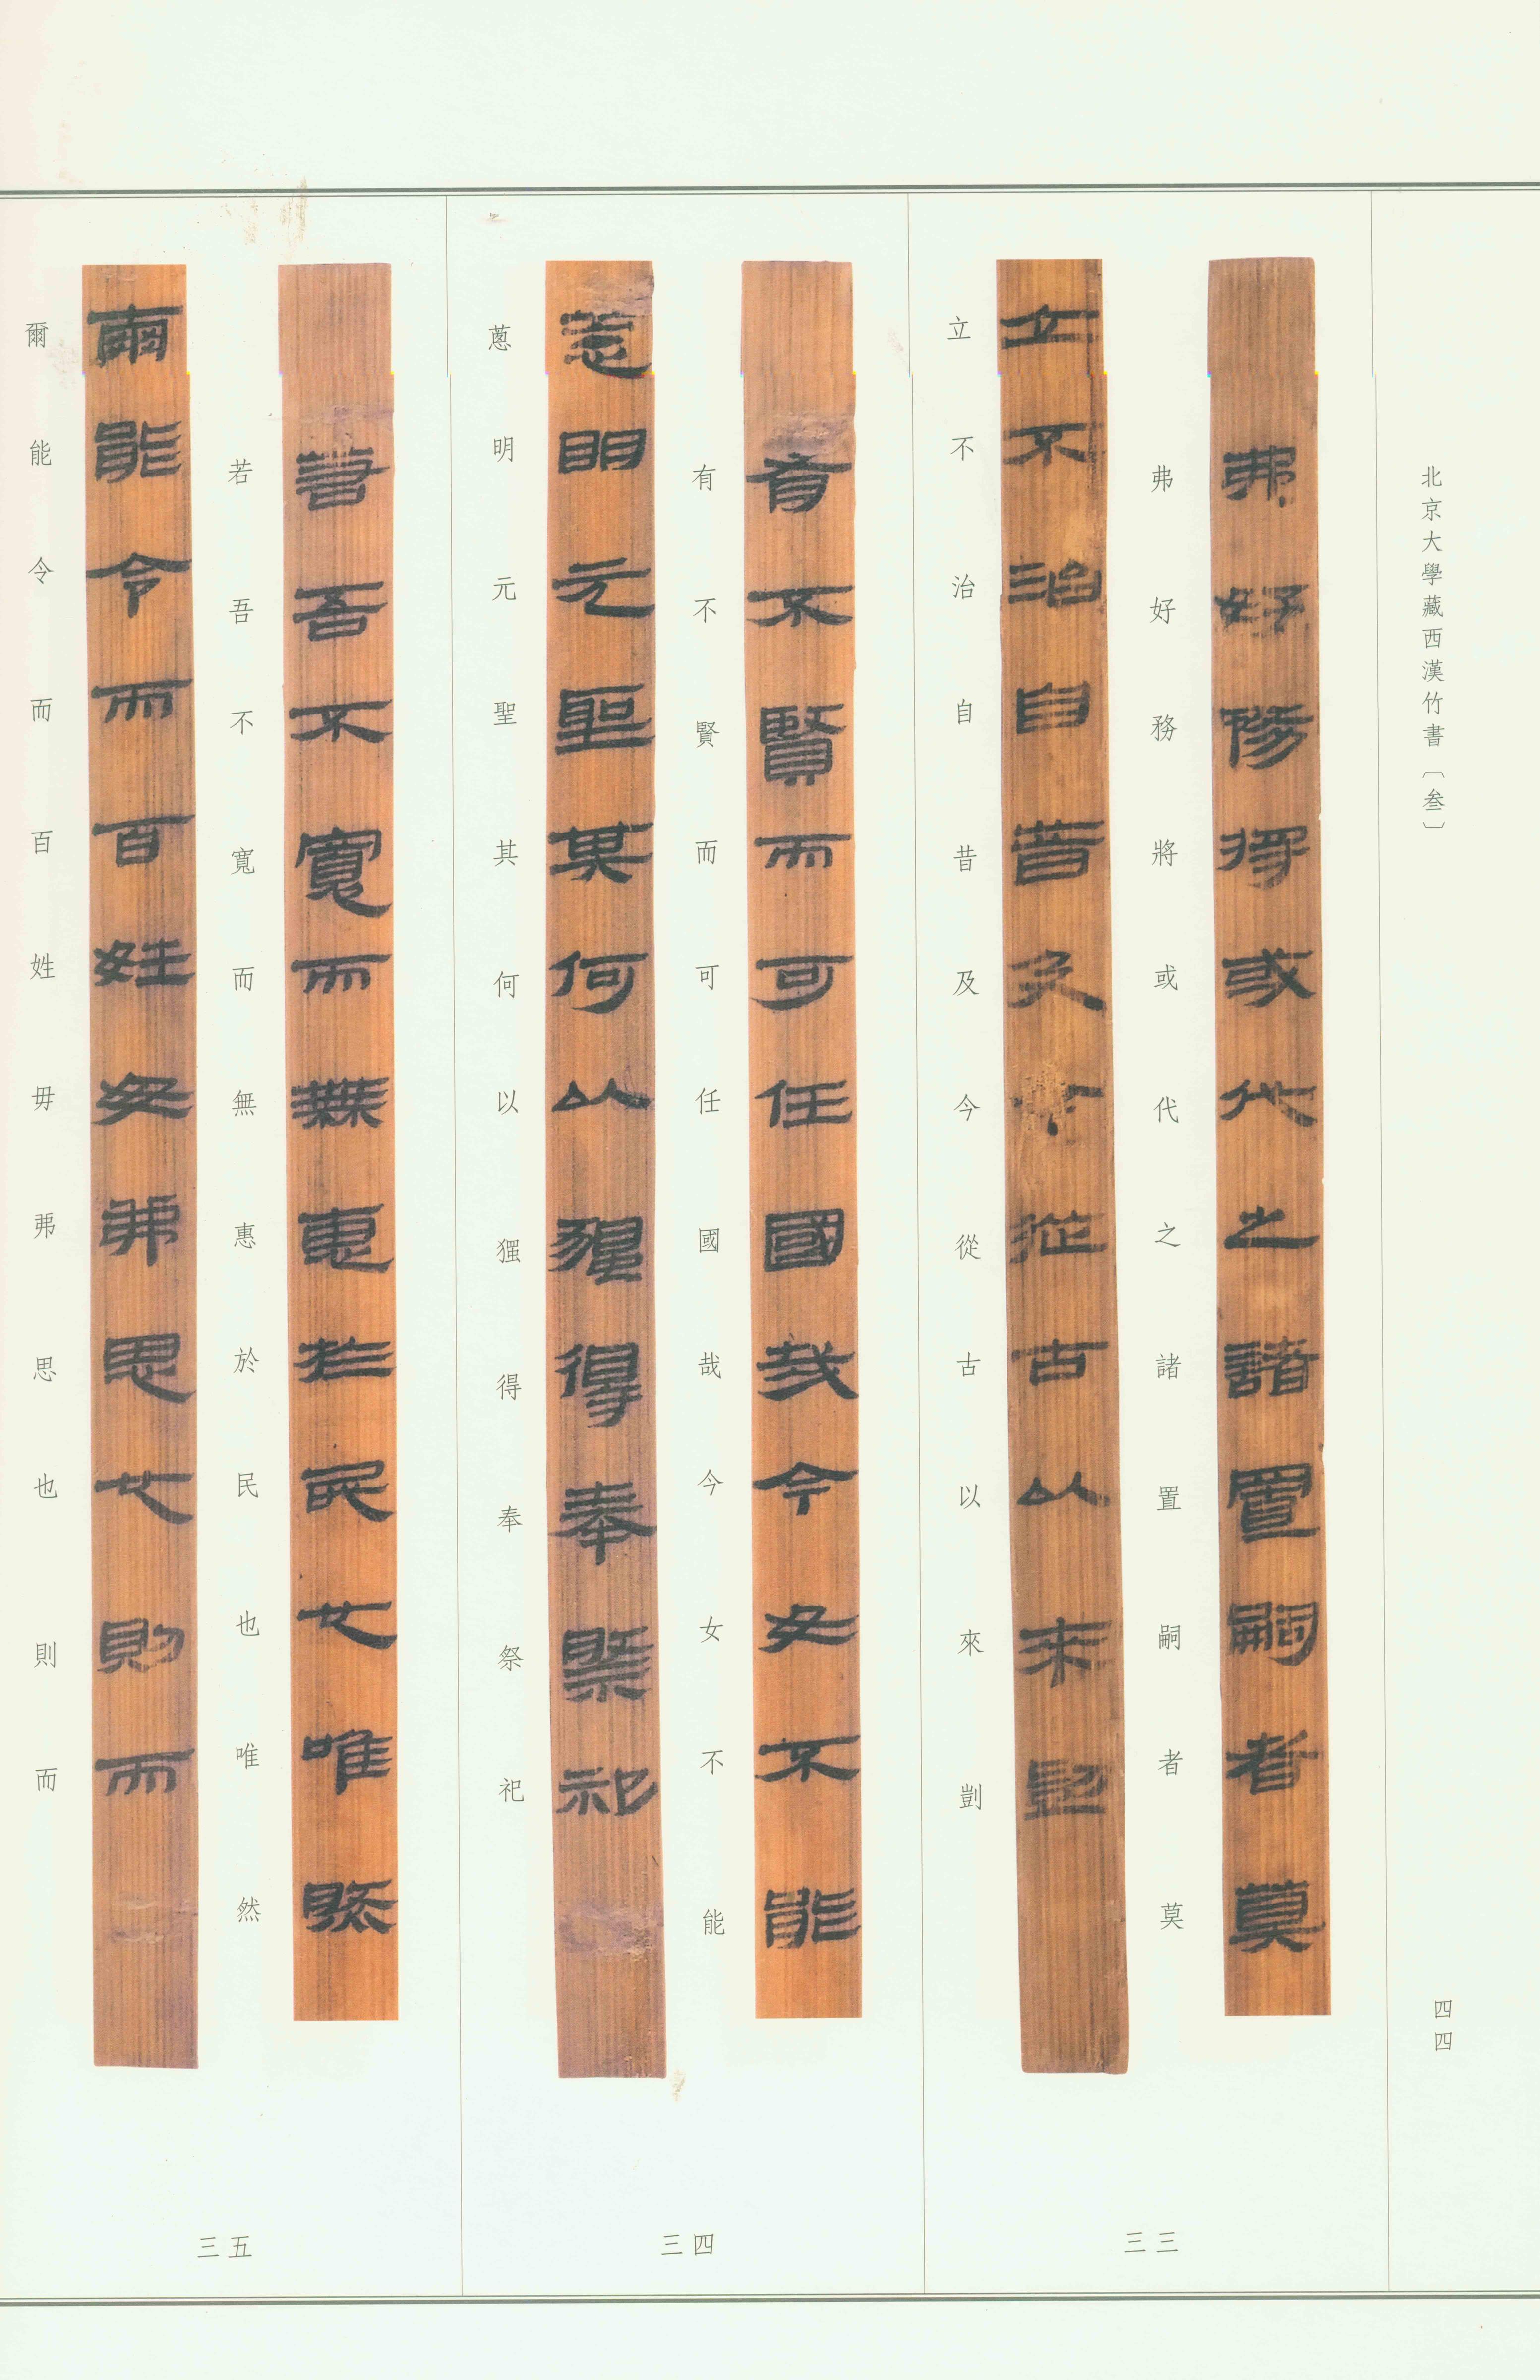 北京大學藏西漢竹書〔叁〕
四四
弗好務將或代之諸置嗣者莫
立不治自昔及今從古以來剴
三三
有不賢而可任國哉今女不能
蔥明元聖其何以獧得奉祭祀
三四
若吾不寬而無惠於民也唯然
爾能令而百姓毋弗思也則而
三五